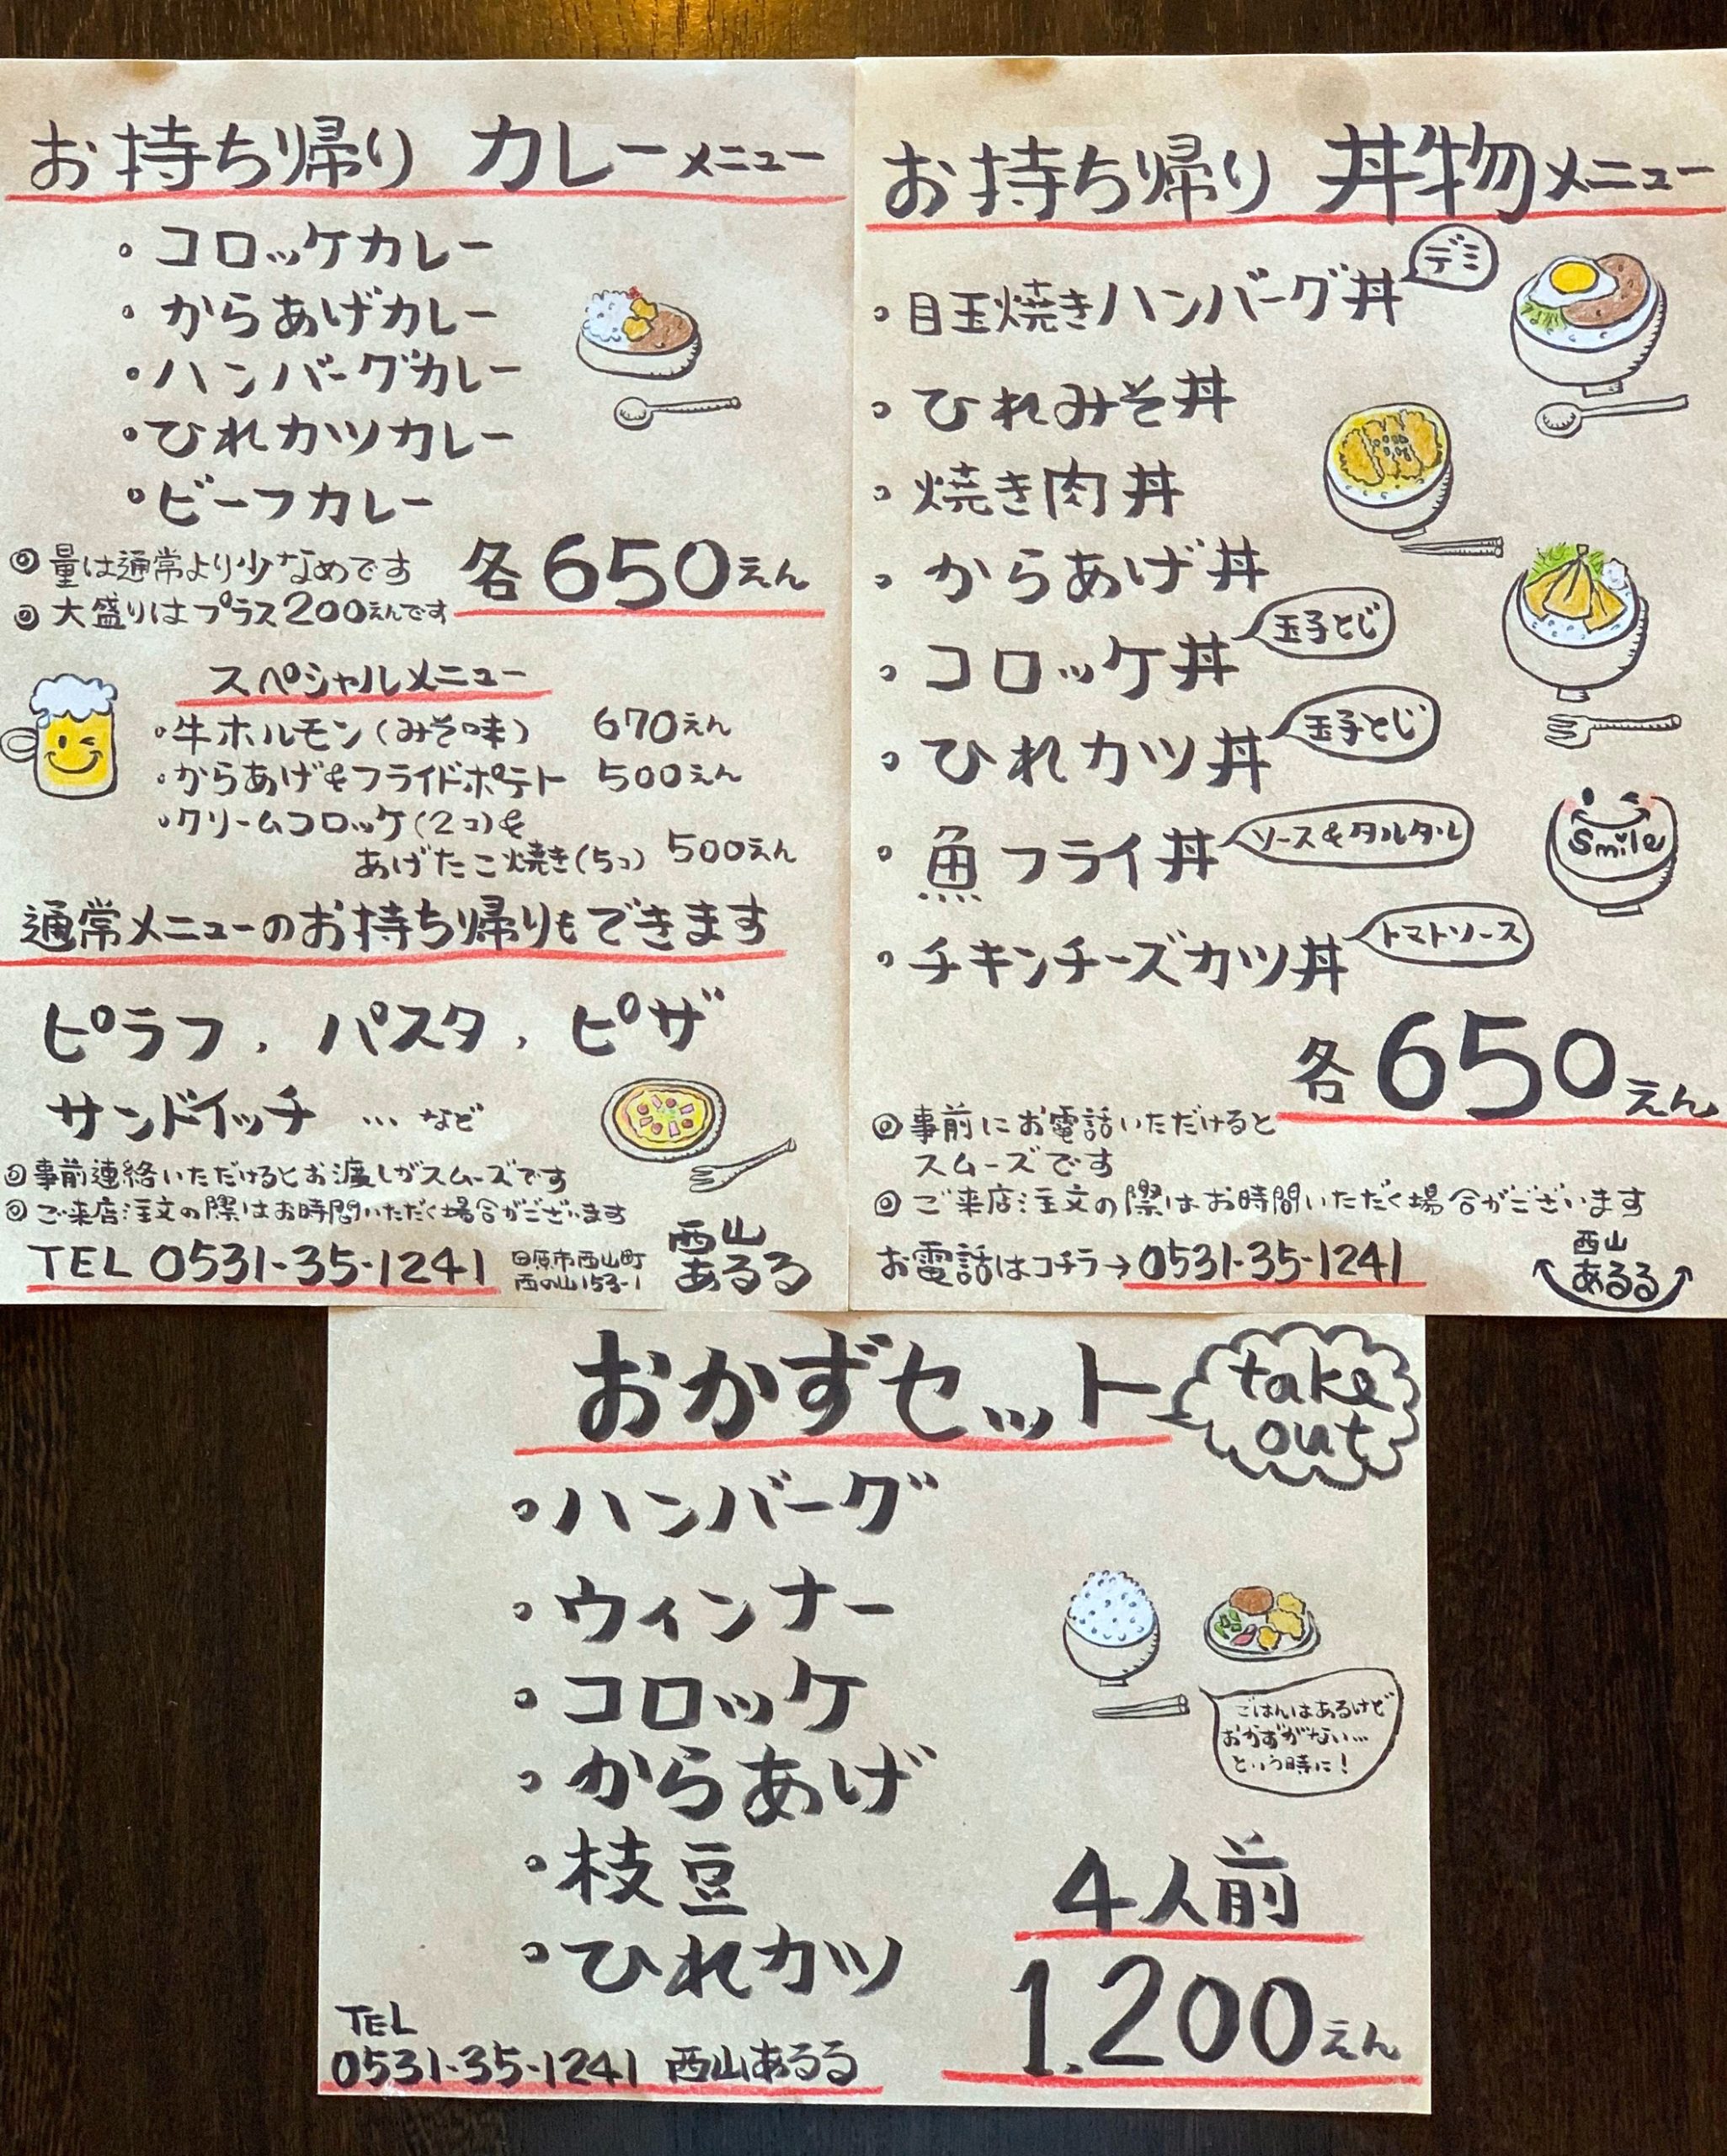 お持ち帰り カレーメニュー
・コロッケカレー
・からあげカレー
・ハンバーグカレー
・ひれカツカレー
・ビーフカレー
◎量は通常より少なめです
◎大盛りはプラス200えんです
各650えん
スペシャルメニュー
・牛ホルモン(みそ味) 670えん
・からあげ&フライドポテト 500えん
・クリームコロッケ(2コ)&
あげたこ焼き(5コ) 500えん
通常メニューのお持ち帰りもできます
ピラフ、パスタ、ピザ
サンドイッチ …など
◎事前連絡いただけるとお渡しがスムーズです
◎ご来店注文の際はお時間いただく場合がございます
TEL 0531-35-1241
田原市西山町
西の山153-1
西山
あるる
お持ち帰り 丼物メニュー
・目玉焼きハンバーグ丼 デミ
・ひれみそ丼
・焼き肉丼
・からあげ丼
・コロッケ丼 玉子とじ
・ひれカツ丼 玉子とじ
・魚フライ丼 ソース&タルタル
smile
・チキンチーズカツ丼 トマトソース
各650えん
◎事前にお電話いただけると
スムーズです
◎ご来店注文の際はお時間いただく場合がございます
お電話はコチラ→0531-35-1241
西山
あるる
おかずセット
take
out
・ハンバーグ
・ウィンナー
・コロッケ
・からあげ
・枝豆
・ひれカツ
ごはんはあるけど
おかずがない…
という時に!
4人前
1.200えん
TEL
0531-35-1241 西山あるる